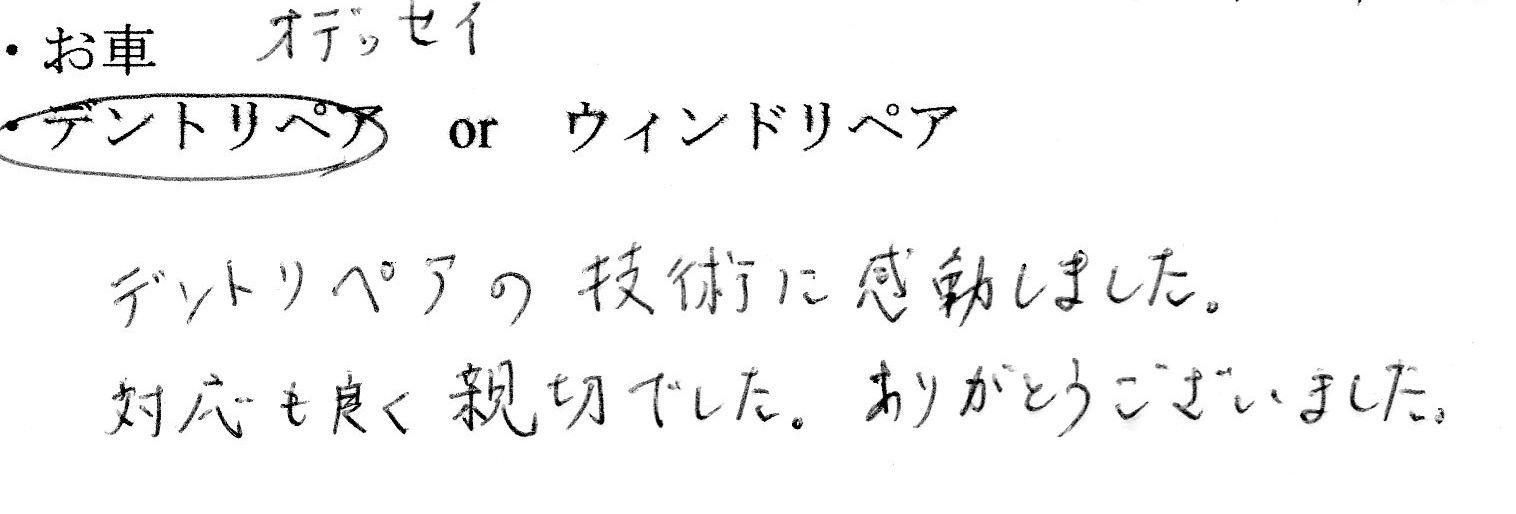 ・お車　オデッセイ
・デントリペア　or　ウィンドリペア
デントリペアの技術に感動しました。
対応も良く親切でした。ありがとうございました。